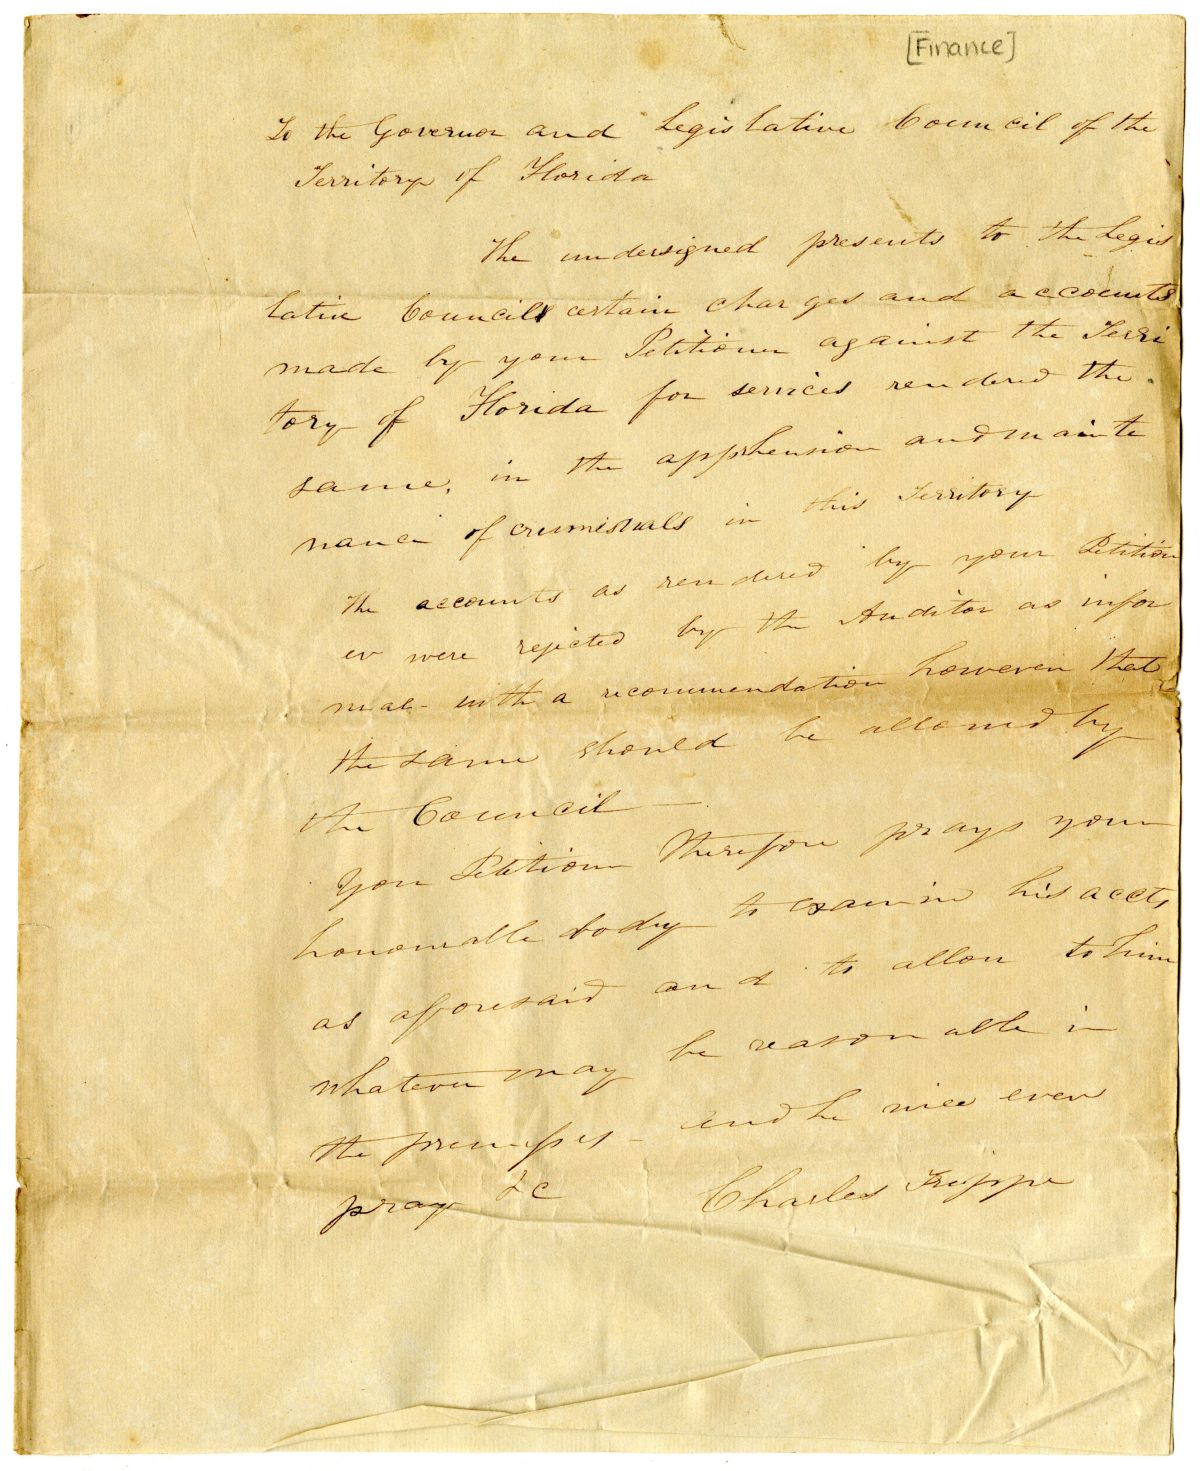 [Finance]
To the Governor and Legislative Council of the
Territory of Florida
The undersigned presents to the Legis
lative Council certain charges and accounts
made by your Petitioner against the Terri
tory of Florida for services rendered the
same, in the apprhension and mainte
nance of crimisnals in this Territory
The accounts as rendered by your Petition
er were rejected by the Auditor as infor
mal - with a recommendation however that
the same should be allowed by
the Council —
Your Petitioner Therefore prays your
honourable body to examine his accts
as aforesaid and to allow to him
whatever may be reasonable in
the premises - and he will ever
pray &c Charles Trippe